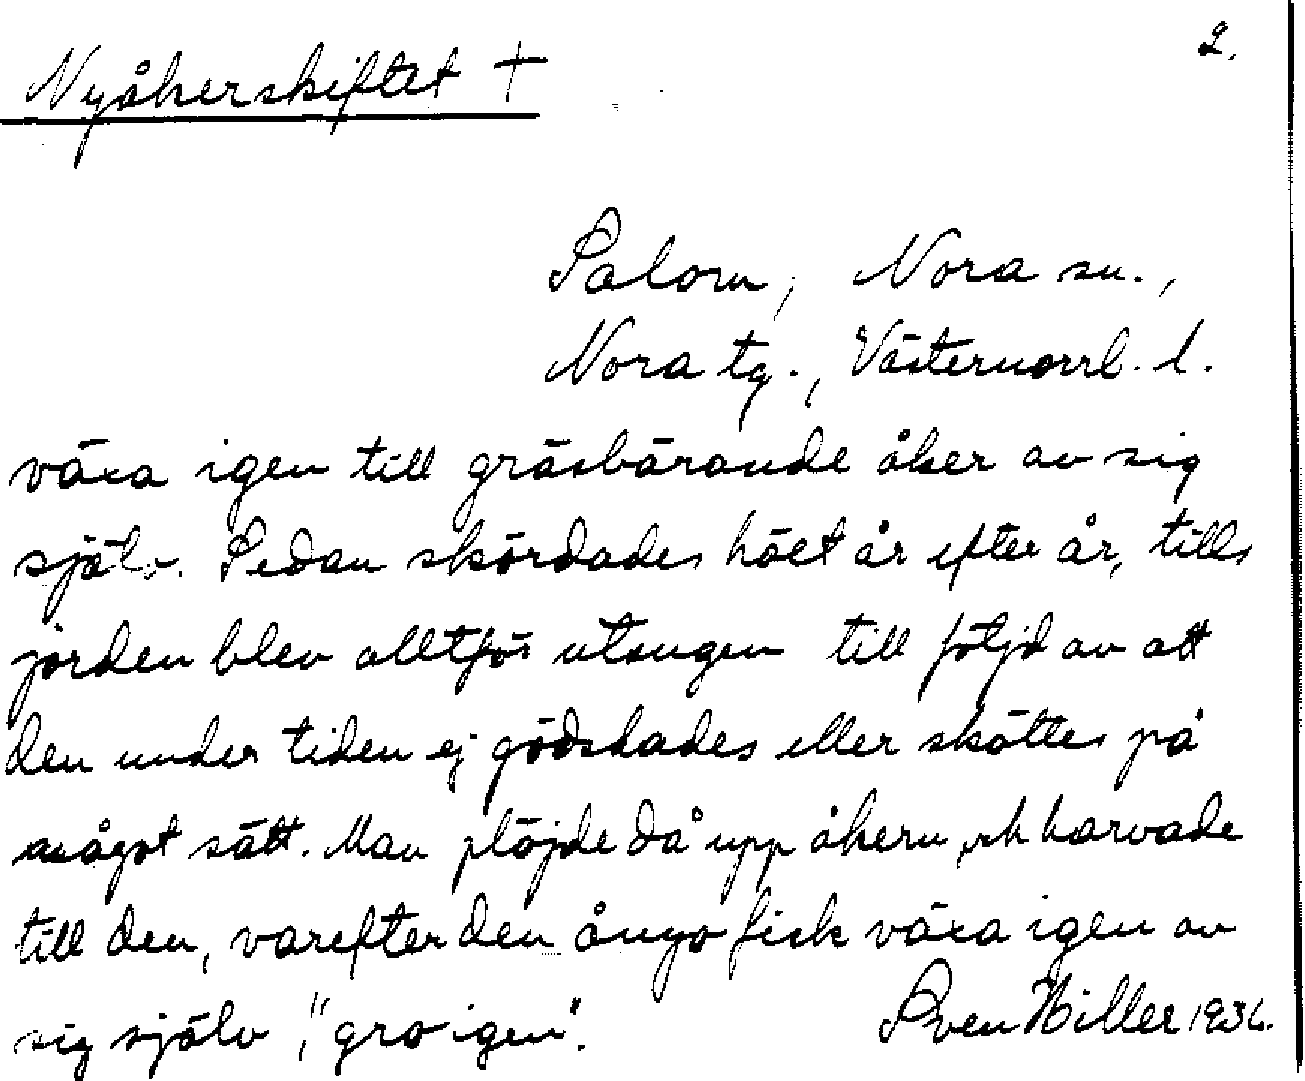 2.
Nyåkerskiftet +
Salom, Nora sn.,
Nora tg., Västernorrl. l.
växa igen till gräsbärande åker av sig
själv. Sedan skördades höet år efter år, tills
jorden blev alltför utsugen till följd av att
den under tiden ej gödslades eller sköttes på
något sätt. Man plöjde då upp åkern och harvade
till den, varefter den ånyo fick växa igen av
sig själv, "gro igen".
Sven Hiller 1936.